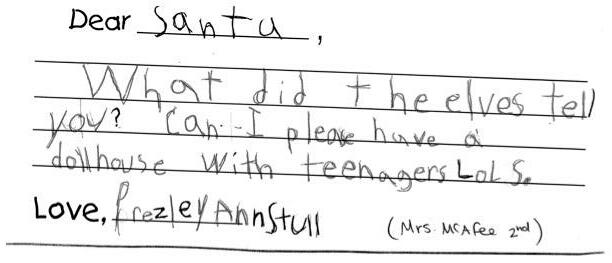 Dear Santa,
What did the elves tell
you? Can I please have a
dollhouse with teenagers LOLS.
Love, Prezley Ann Stull
(Mrs. McAfee 2nd)